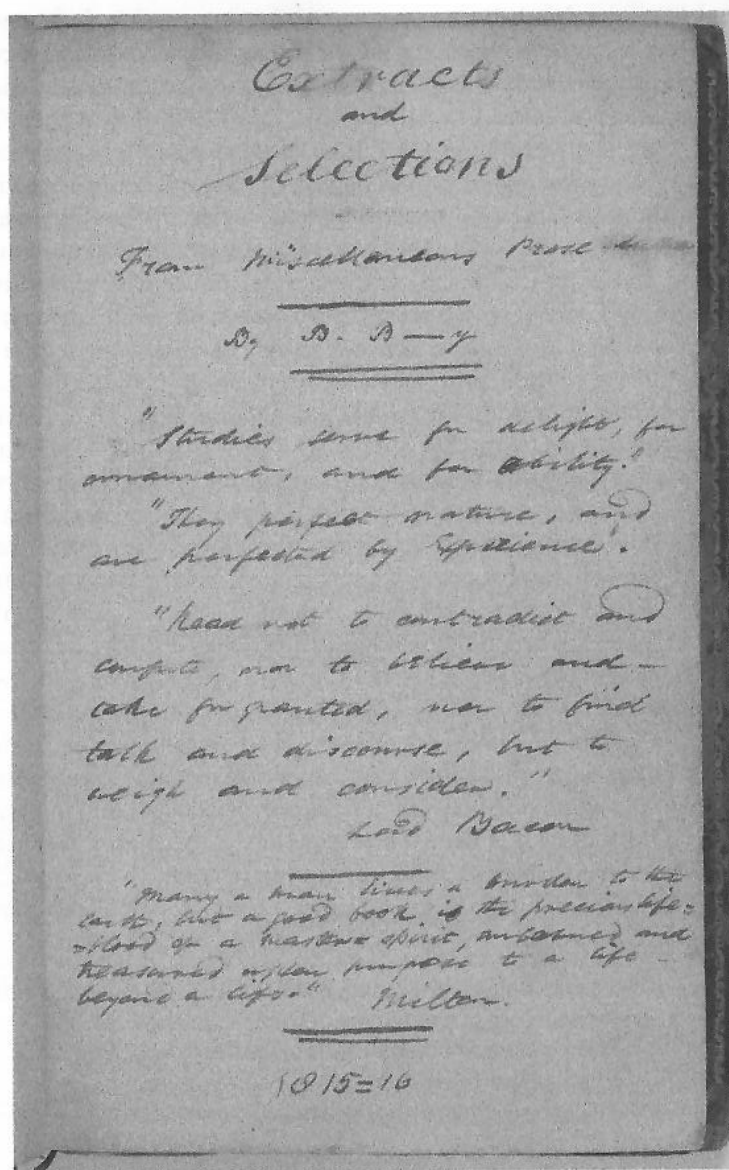 Extracts
and
Selections
From Miscellaneous Prose
By B. B—y
"Studies serve for delight, for
ornament, and for ability."
"They perfect nature, and
are perfected by Experience".
"Read not to contradict and
confute, nor to believe and –
take for granted, nor to find
talk and discourse, but to
weigh and consider."
Lord Bacon
"Many a man lives a burden to the
earth; but a good book is the precious life=
=blood of a master spirit, embalmed and
treasured upon purpose to a life –
beyond a life." Milton.
1815=16